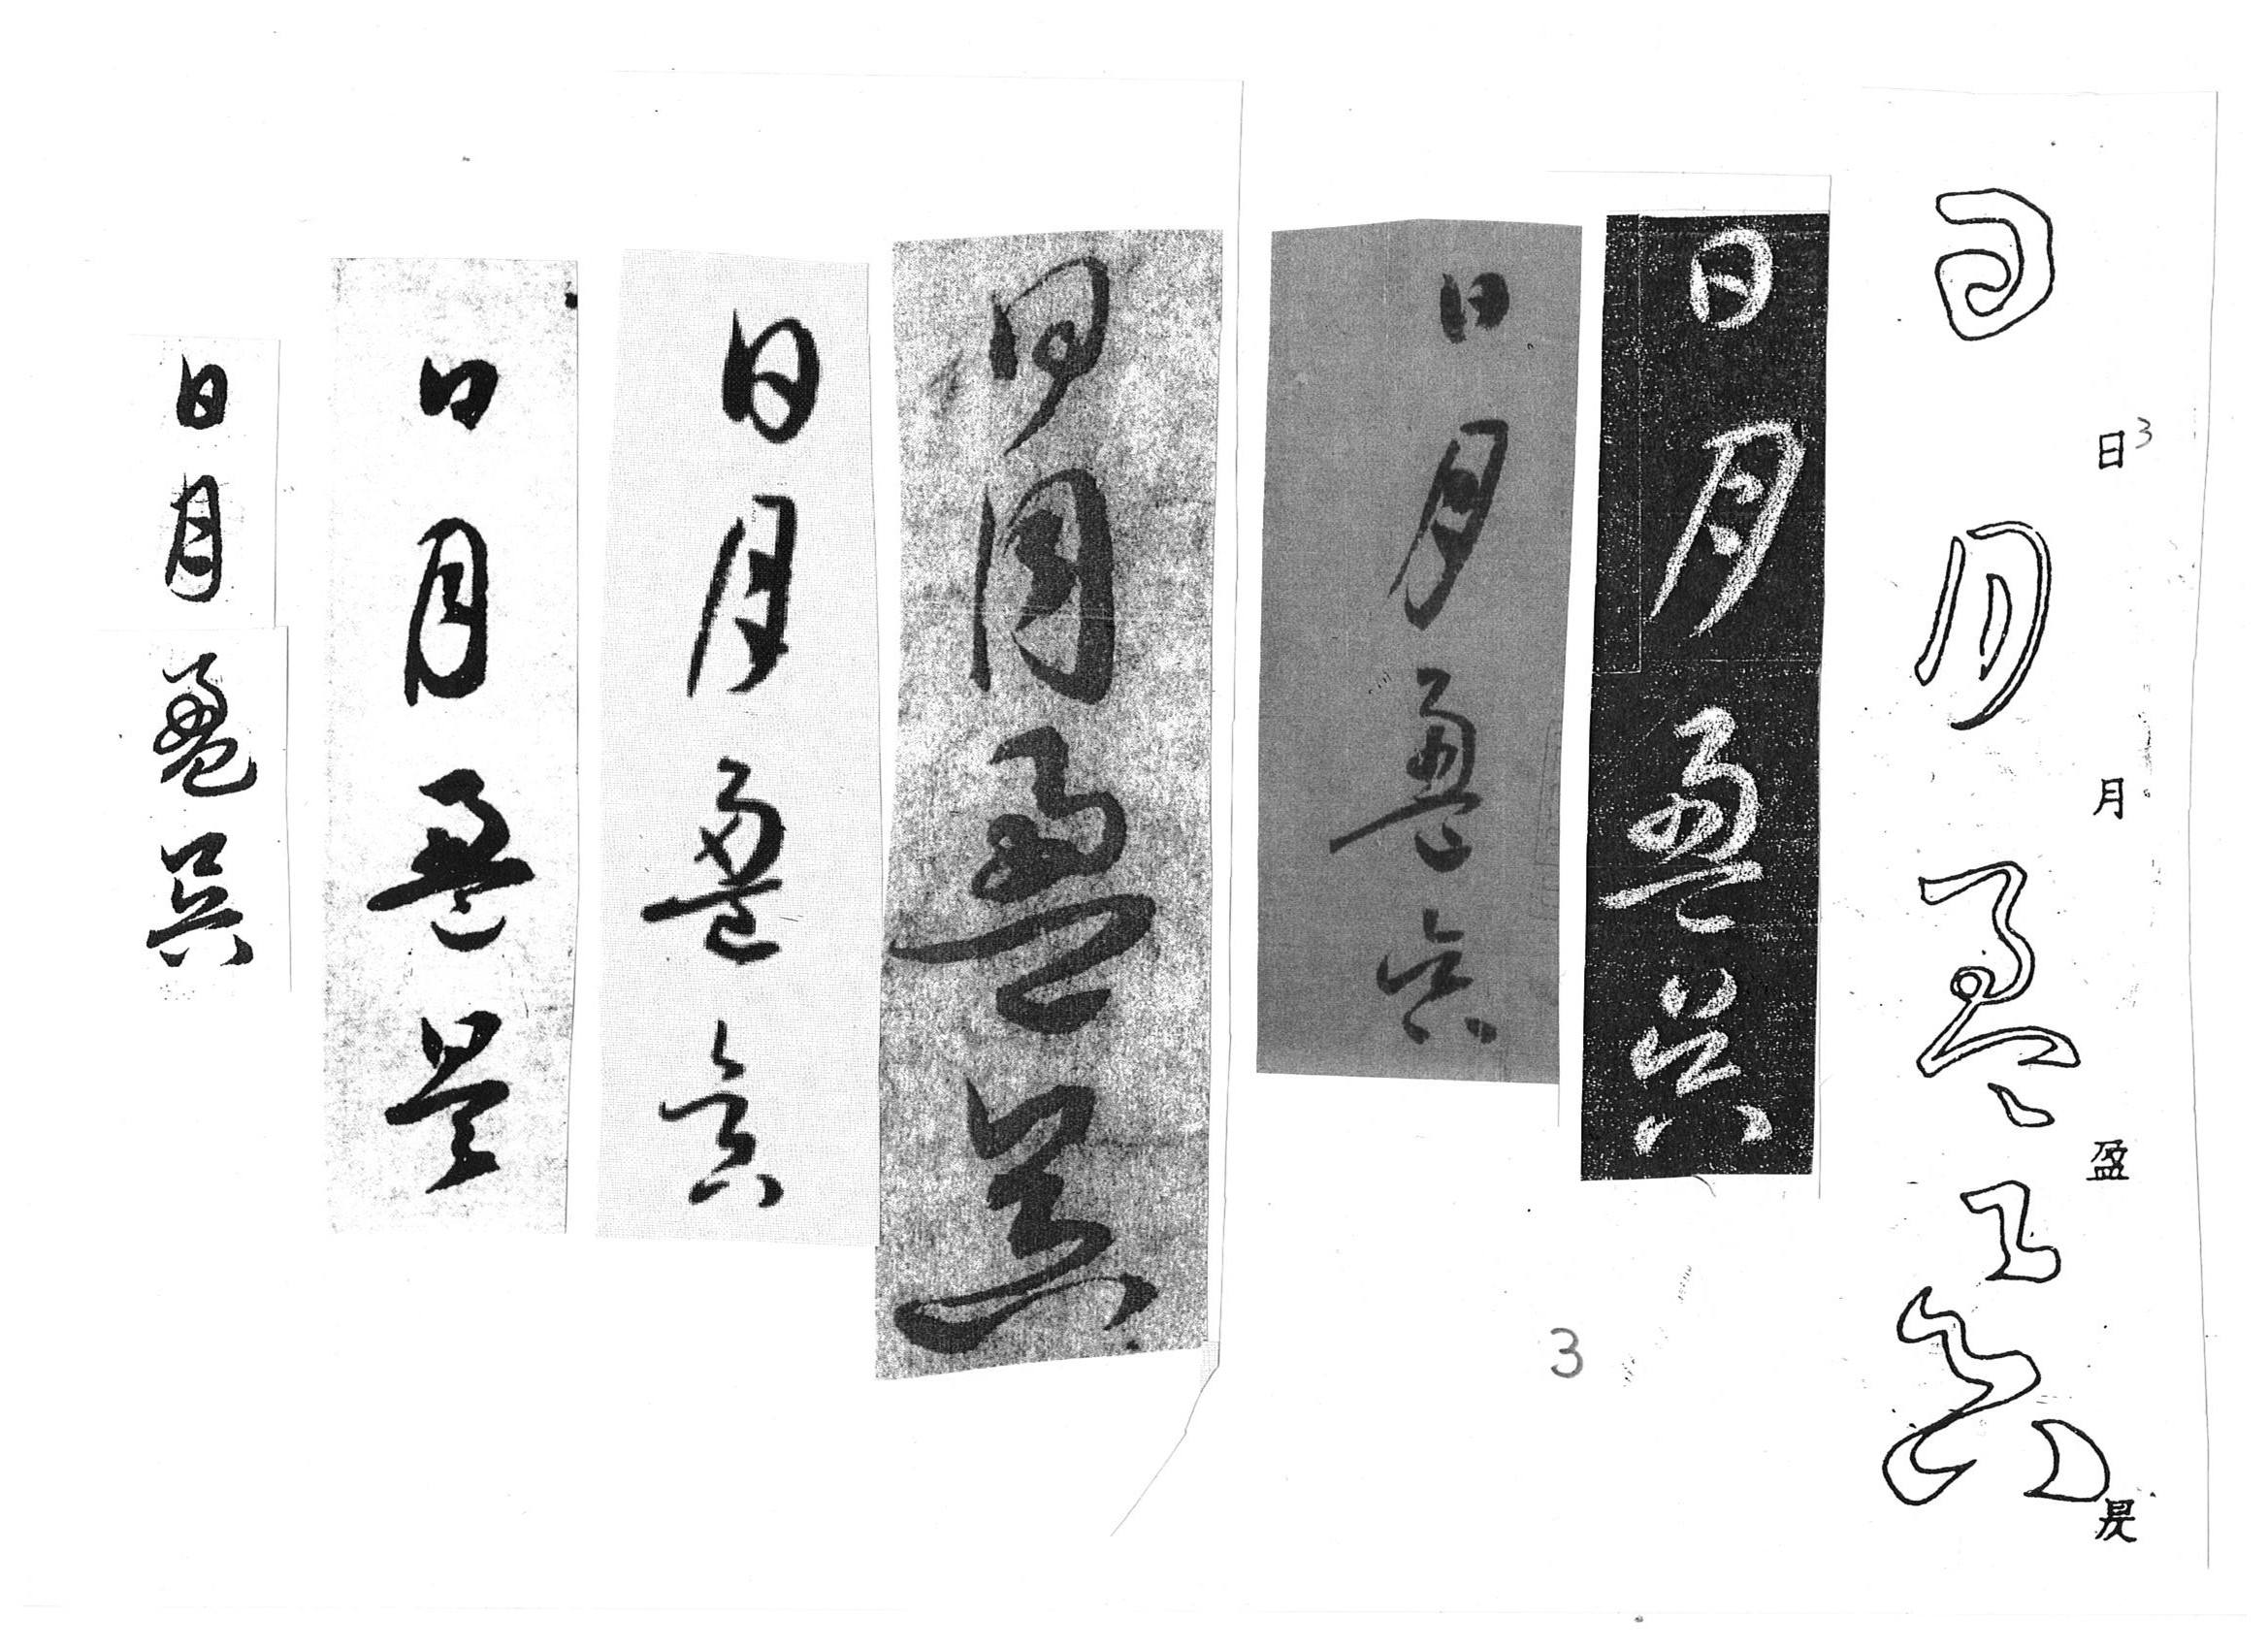 日3月盈昃
日月盈昃
日月盈昃
日月盈昃
3
日月盈昃
日月盈昃
日月盈昃
日月盈昃